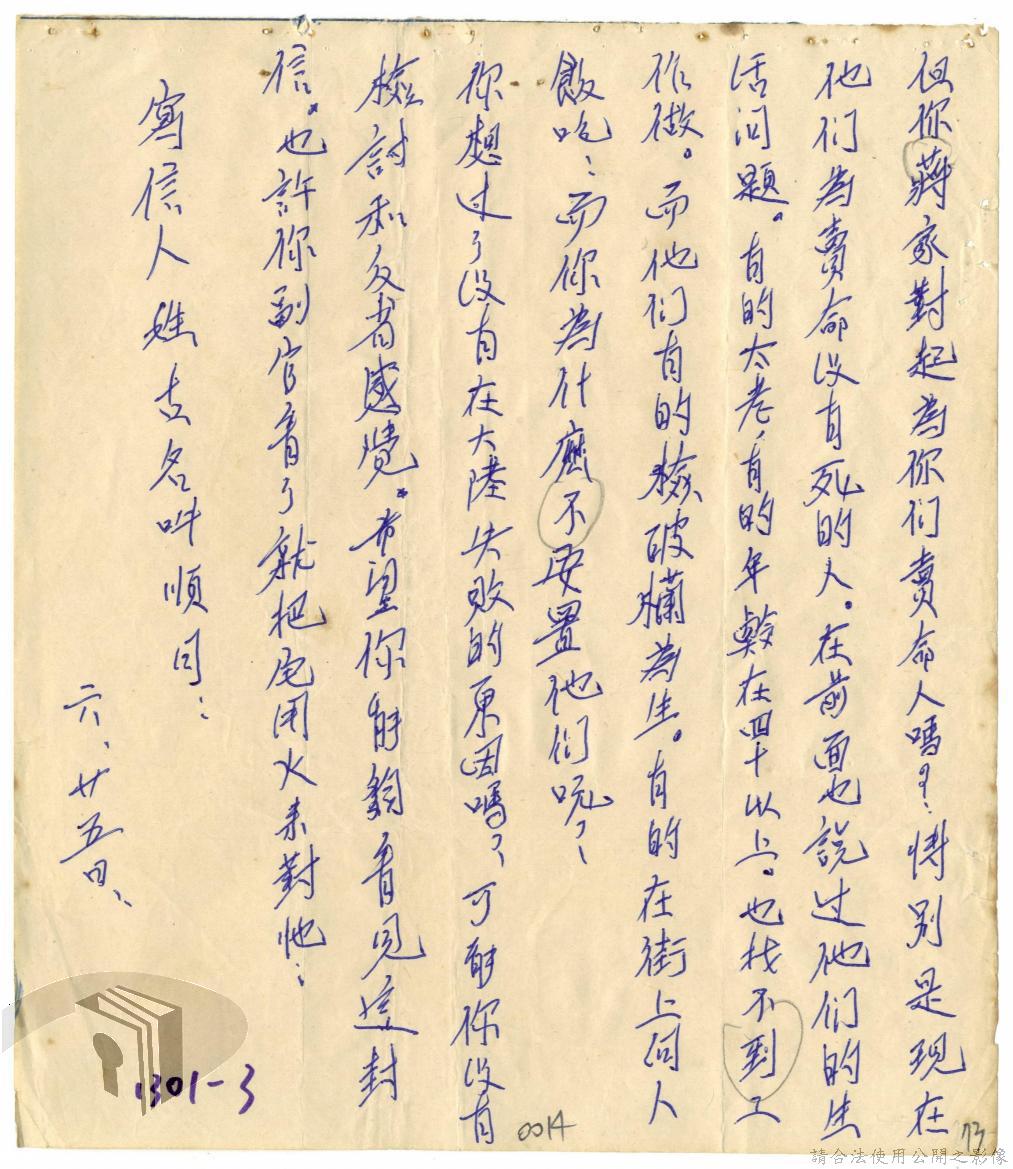 但你蔣家對起為你们賣命人嗎？：特别是現在
他们為賣命没有死的人。在前面也説过他们的生
活问題。有的太老，有的年齡在四十以上。也找不到工
作做。而他们有的檢破爛為生。有的在街上向人
飯吃：而你為什麽不安置他们呢？
你想过了没有在大陸失败的原因嗎？可能你没有
檢討和反省感覺。希望你能夠看見這封
信。也許你副官看了就把它用火来對他：
寫信人姓古名叫順日：
六、廿五日、
1301-3
0014
73
請合法使用公開之影像